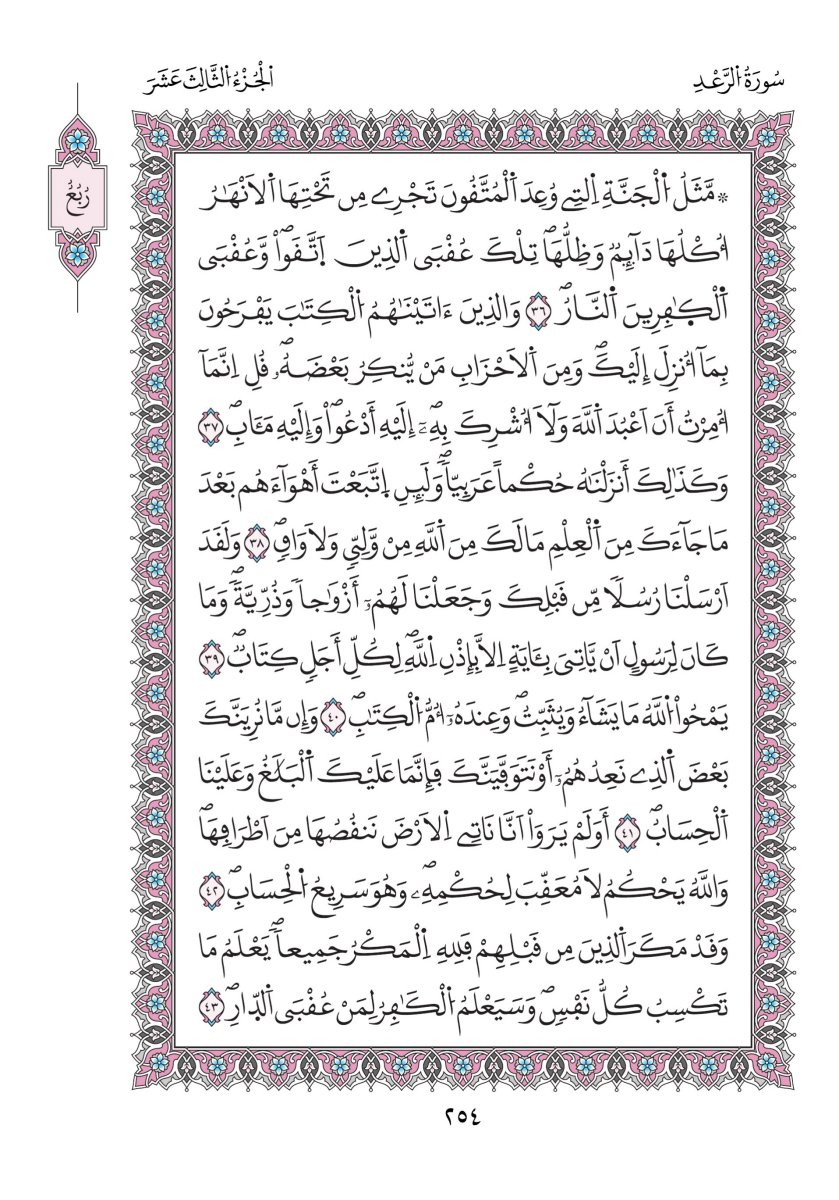 سُورَةُ اُ۬لرَّعْدِ
اُ۬لْجُزْءُ اُ۬لثَّالِثَ عَشَرَ
رُبُعُ
۞ مَّثَلُ اُ۬لْجَنَّةِ اِ۬لتِے وُعِدَ اَ۬لْمُتَّقُونَ تَجْرِے مِن تَحْتِهَا اَ۬لَانْهَٰرُ
أُكْلُهَا دَآئِمٞ وَظِلُّهَاۖ تِلْكَ عُقْبَي اَ۬لذِينَ اَ۪تَّقَواْۖ وَّعُقْبَي
اَ۬لْكٰ۪فِرِينَ اَ۬لنَّارُۖ ٣٦ وَالذِينَ ءَاتَيْنَٰهُمُ اُ۬لْكِتَٰبَ يَفْرَحُونَ
بِمَآ أُنزِلَ إِلَيْكَۖ وَمِنَ اَ۬لَاحْزَابِ مَنْ يُّنكِرُ بَعْضَهُۥۖ قُلِ اِنَّمَآ
أُمِرْتُ أَنَ اَعْبُدَ اَ۬للَّهَ وَلَآ أُشْرِكَ بِهِۦٓۖ إِلَيْهِ أَدْعُواْۖ وَإِلَيْهِ مَـَٔابِۖ ٣٧
وَكَذَٰلِكَ أَنزَلْنَٰهُ حُكْماً عَرَبِيّاٗۖ وَلَئِنِ اِ۪تَّبَعْتَ أَهْوَآءَهُم بَعْدَ
مَا جَآءَكَ مِنَ اَ۬لْعِلْمِ مَا لَكَ مِنَ اَ۬للَّهِ مِنْ وَّلِيّٖ وَلَا وَاقٖۖ ٣٨ وَلَقَدَ
اَرْسَلْنَا رُسُلاٗ مِّن قَبْلِكَ وَجَعَلْنَا لَهُمُۥٓ أَزْوَٰجاٗ وَذُرِّيَّةٗۖ وَمَا
كَانَ لِرَسُولٍ اَنْ يَّاتِيَ بِـَٔايَةٍ اِلَّا بِإِذْنِ اِ۬للَّهِۖ لِكُلِّ أَجَلٖ كِتَابٞۖ ٣٩
يَمْحُواْ اُ۬للَّهُ مَا يَشَآءُ وَيُثَبِّتُۖ وَعِندَهُۥٓ أُمُّ اُ۬لْكِتَٰبِۖ ٤٠ وَإِن مَّا نُرِيَنَّكَ
بَعْضَ اَ۬لذِے نَعِدُهُمُۥٓ أَوْ نَتَوَفَّيَنَّكَ فَإِنَّمَا عَلَيْكَ اَ۬لْبَلَٰغُ وَعَلَيْنَا
اَ۬لْحِسَابُۖ ٤١ أَوَلَمْ يَرَوَاْ اَنَّا نَاتِے اِ۬لَارْضَ نَنقُصُهَا مِنَ اَطْرَافِهَاۖ
وَاللَّهُ يَحْكُمُ لَا مُعَقِّبَ لِحُكْمِهِۦۖ وَهُوَ سَرِيعُ اُ۬لْحِسَابِۖ ٤٢
وَقَدْ مَكَرَ اَ۬لذِينَ مِن قَبْلِهِمْ فَلِلهِ اِ۬لْمَكْرُ جَمِيعاٗۖ يَعْلَمُ مَا
تَكْسِبُ كُلُّ نَفْسٖۖ وَسَيَعْلَمُ اُ۬لْكَٰفِرُ لِمَنْ عُقْبَي اَ۬لدّ۪ارِۖ ٤٣
٢٥٤